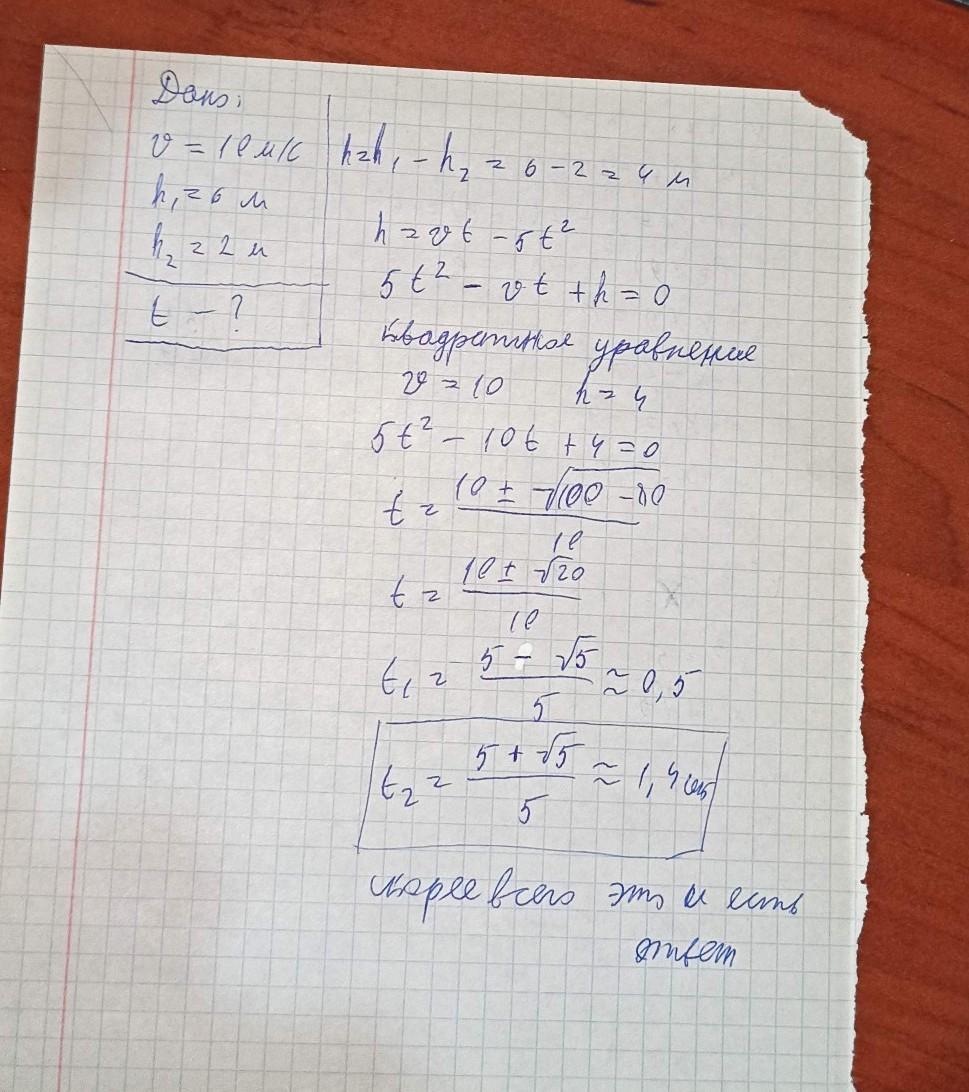 Дано:
v = 10 м/с
h₁ = 6 м
h₂ = 2 м
t - ?
h = h₁ - h₂ = 6 - 2 = 4 м
h = vt - 5t²
5t² - vt + h = 0
квадратное уравнение
v = 10 h = 4
5t² - 10t + 4 = 0
t = (10 ± √(100 - 80)) / 10
t = (10 ± √20) / 10
t₁ = (5 - √5) / 5 ≈ 0,5
t₂ = (5 + √5) / 5 ≈ 1,4 сек
скорее всего это и есть
ответ